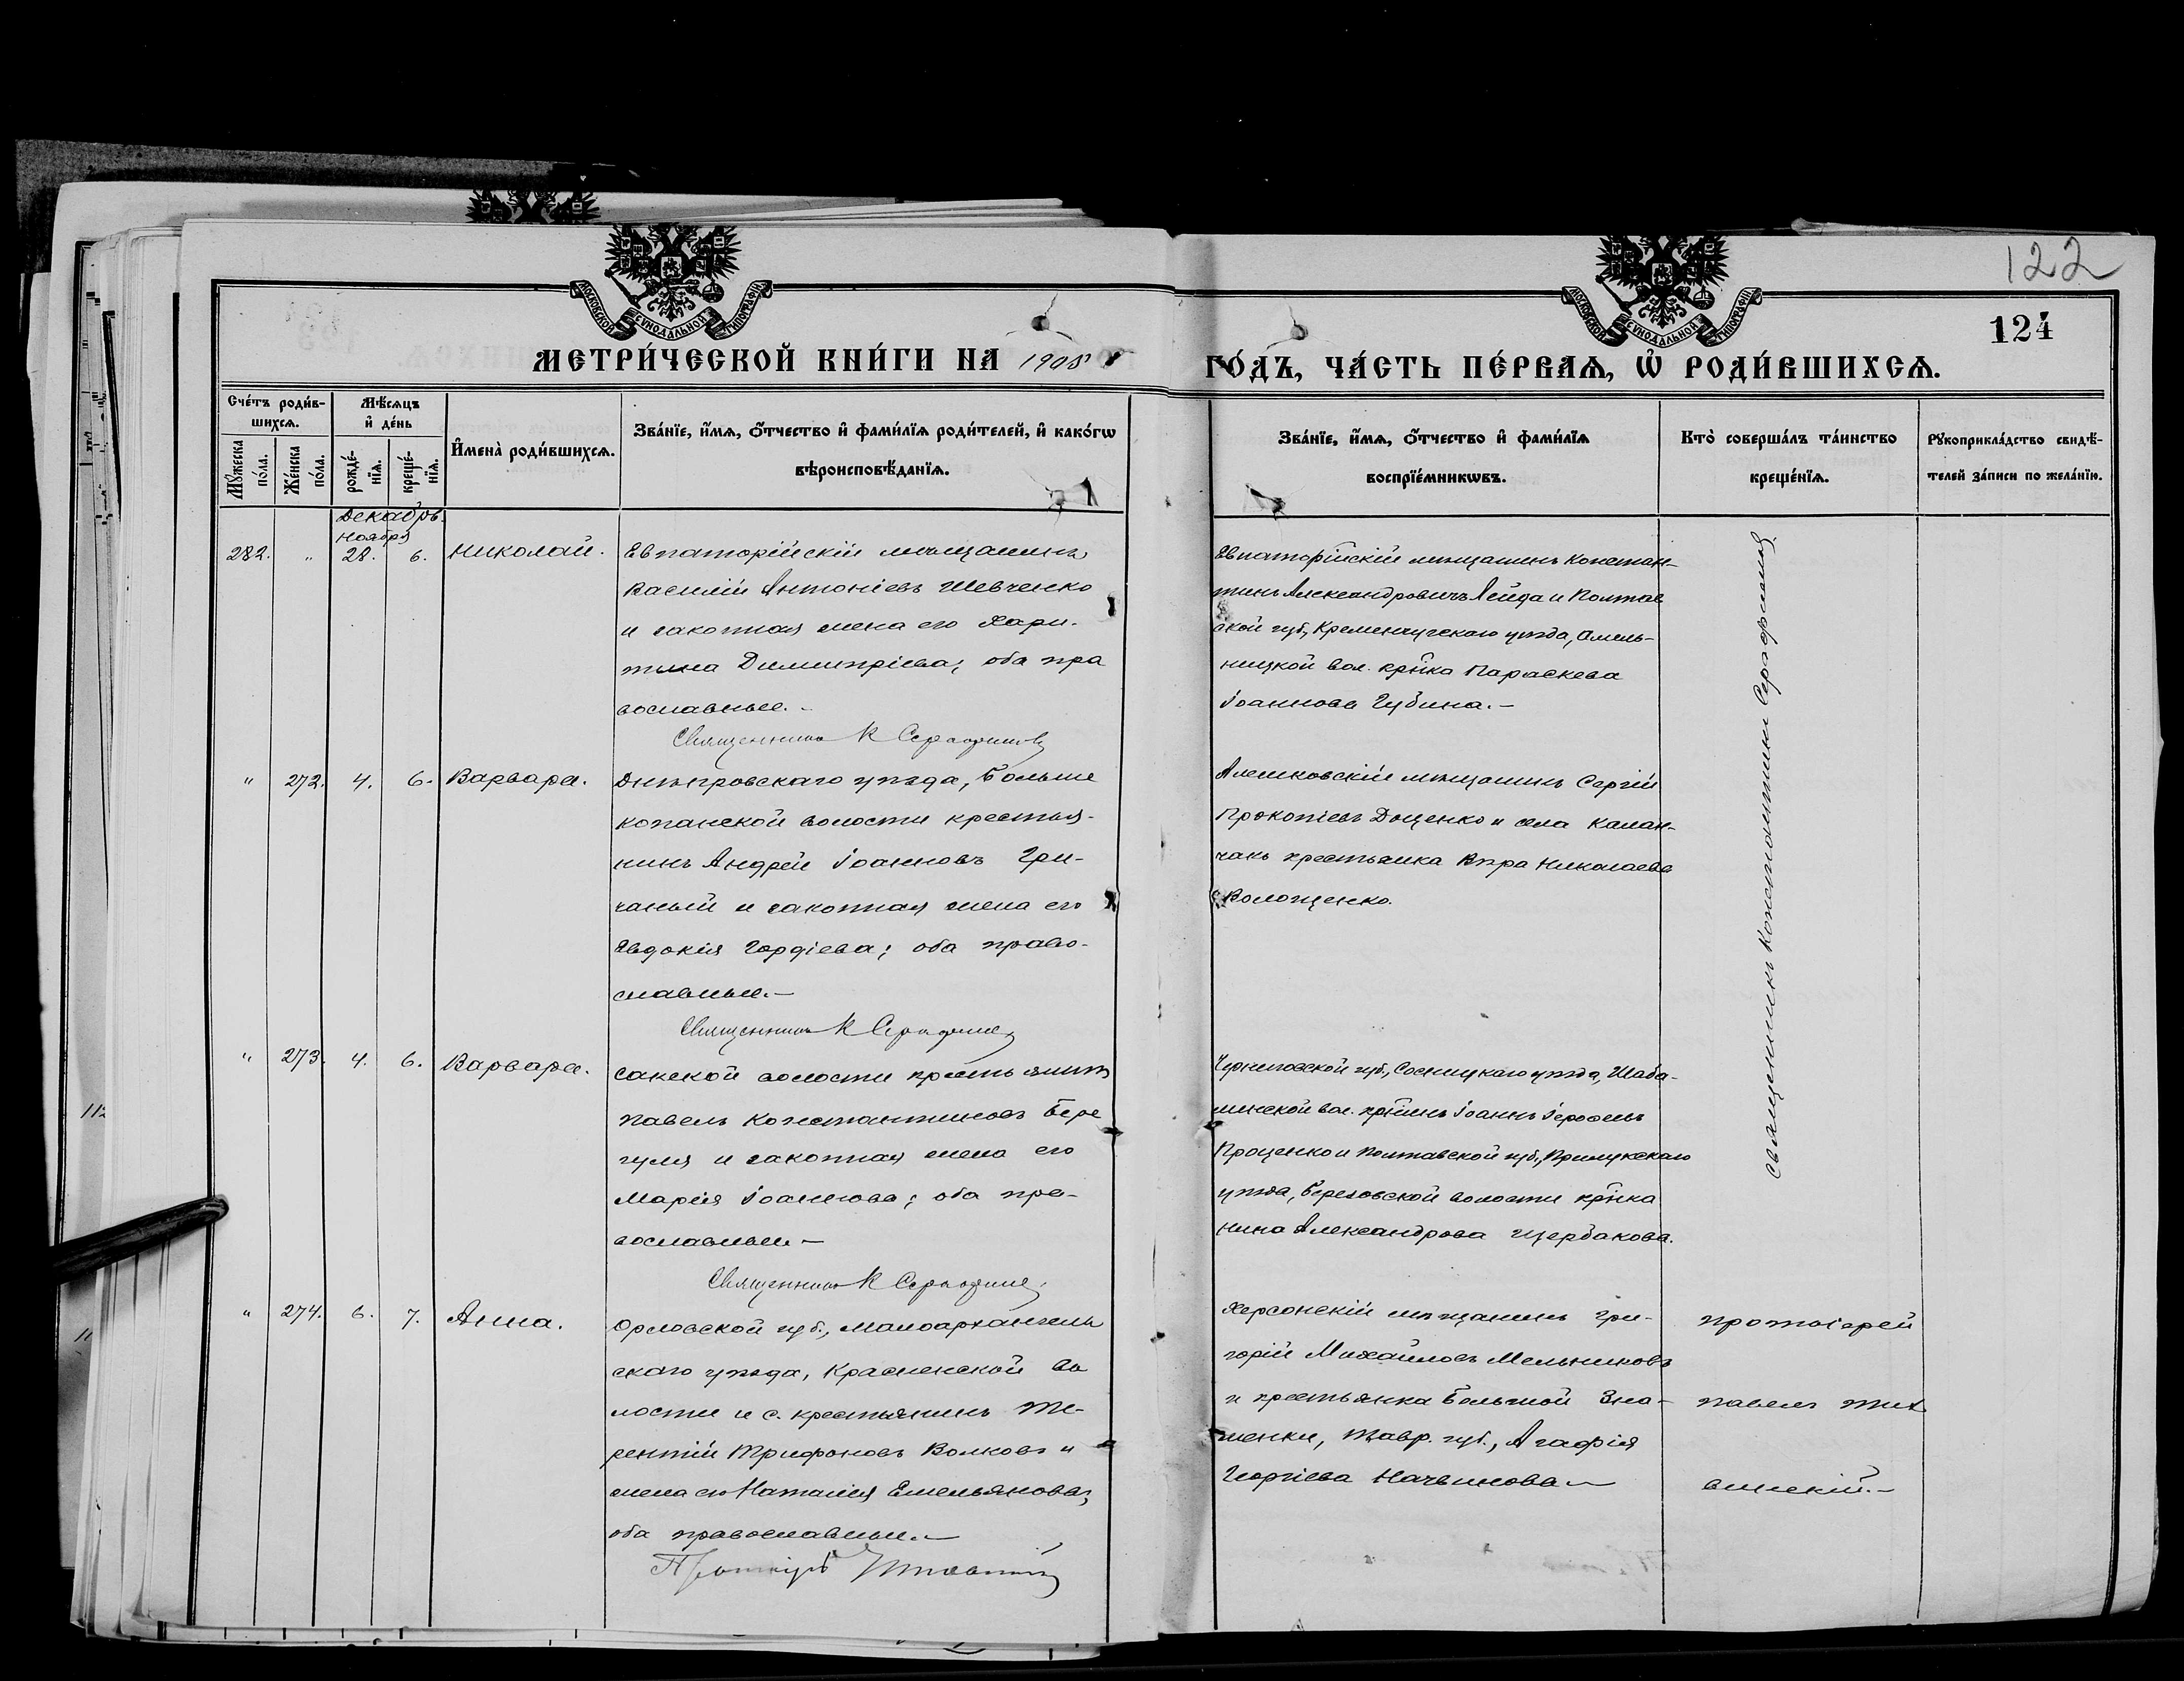 122
124
МОСКОВСКОЙ СѴНОДАЛЬНОЙ ТИПОГРАФІИ
МОСКОВСКОЙ СѴНОДАЛЬНОЙ ТИПОГРАФІИ
МЕТРИ́ЧЕСКОЙ КНИ́ГИ НА 1905 ГО́ДЪ, ЧА́СТЬ ПЕ́РВАѦ, Ѽ РОДИ́ВШИХСѦ.
Сче́тъ роди́в-
шихсѧ.
Мꙋ́жеска по́ла.
Же́нска по́ла.
Мѣ́сѧцъ
и҆ де́нь
рожде́-нїѧ.
креще́-нїѧ.
И҆мена̀ роди́вшихсѧ.
Зва́нїе, и҆́мѧ, ѻ҆́тчество и҆ фами́лїѧ роди́телей, и҆ како́гѡ
вѣроисповѣ́данїѧ.
Зва́нїе, и҆́мѧ, ѻ҆́тчество и҆ фами́лїѧ
воспрїе́мникѡвъ.
Кто̀ соверша́лъ та́инство
креще́нїѧ.
Рꙋкоприкла́дство свидѣ́-
телей за́писи по жела́нїю.
Декабрь.
Ноября
282. " 28. 6. Николай.
Евпаторійскій мѣщанинъ
Василій Антоніевъ Шевченко
и законная жена его Хари-
тина Димитріева; оба пра
вославные.-
Священникъ К Серафимовъ
Евпаторійскій мѣщанинъ Констан-
тинъ Александровичъ Лейда и Полтав
ской губ., Кременчугскаго уѣзда, Омель-
ницкой вол. кр̃нка Параскева
Іоаннова Губина.-
Священникъ Константинъ Серафимовъ
" 272. 4. 6. Варвара.
Днѣпровскаго уѣзда, Больше
копанской волости крестья-
нинъ Андрей Іоанновъ Гри-
чаный и законная жена его
Евдокія Гордіева; оба право-
славные.-
Священникъ К Серафимовъ
Алешковскій мѣщанинъ Сергій
Прокопіевъ Доценко и села Калан-
чакъ крестьянка Вѣра Николаева
Волощенко.
" 273. 4. 6. Варвара.
Сакской волости крестьянинъ
Павелъ Константиновъ Бере
гуля и законная жена его
Марія Іоаннова; оба пра-
вославные-
Священникъ К Серафимовъ
Черниговской губ., Сосницкаго уѣзда, Шаба-
линской вол. кр̃нинъ Іоаннъ Іерофеевъ
Проценко и Полтавской губ., Прилукскаго
уѣзда, Березовской волости кр̃нка
Нина Александрова Щербакова.
" 274. 6. 7. Анна.
Орловской губ., Малоархангель
скаго уѣзда, Красненской во
лости и с. крестьянинъ Те-
рентій Трифоновъ Волковъ и
жена его Наталія Емельянова;
оба православные.-
Протоіерей
Херсонскій мѣщанинъ Гри-
горій Михайловъ Мельниковъ
и крестьянка Большой Зна-
менки, Тавр. губ., Агафія
Георгіева Начвинова-
Протоіерей
Павелъ Тих
винскій.-